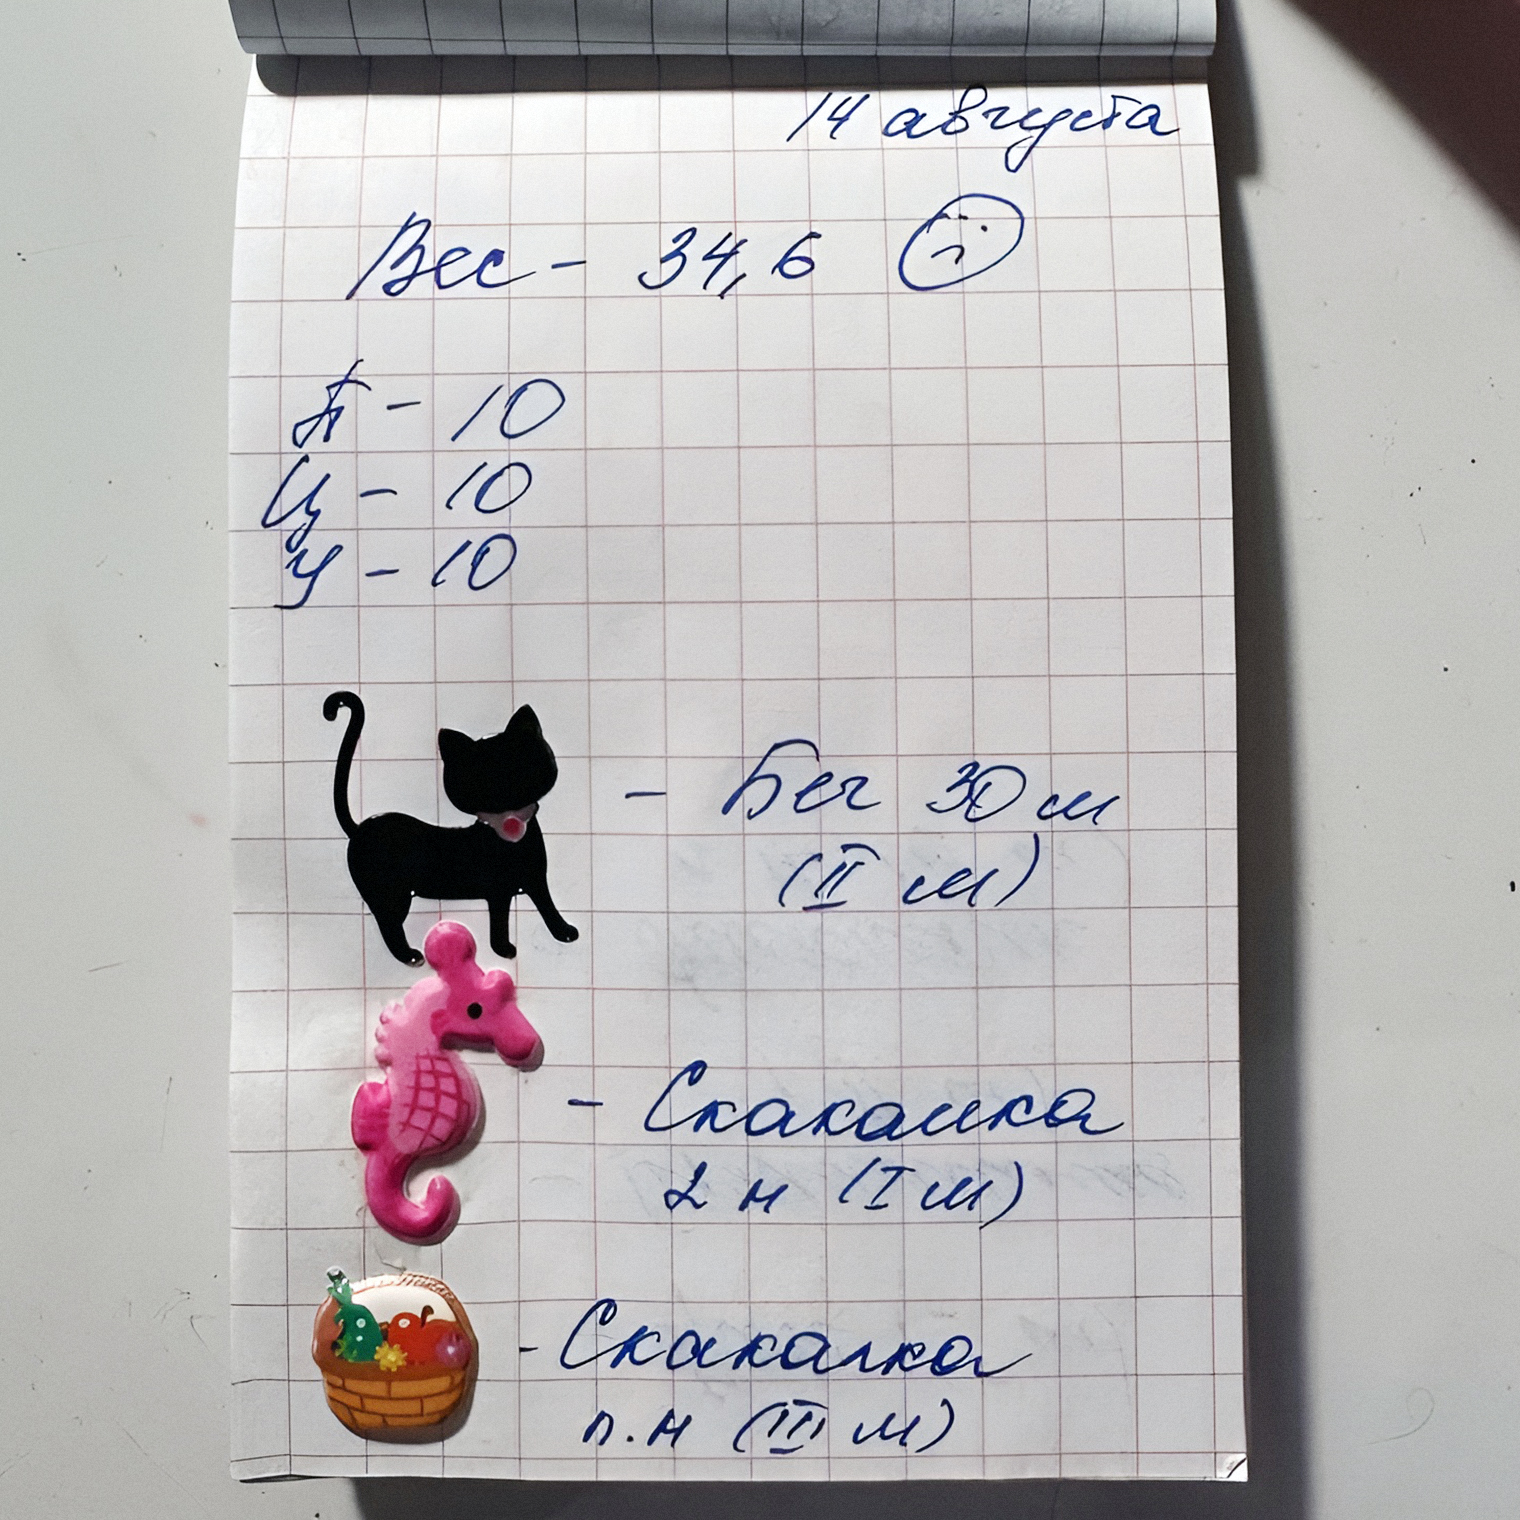 14 августа
Вес - 34,6
П - 10
Ц - 10
У - 10
- Бег 30 м
(II м)
- Скакалка
2 н (I м)
- Скакалка
п.н (III м)